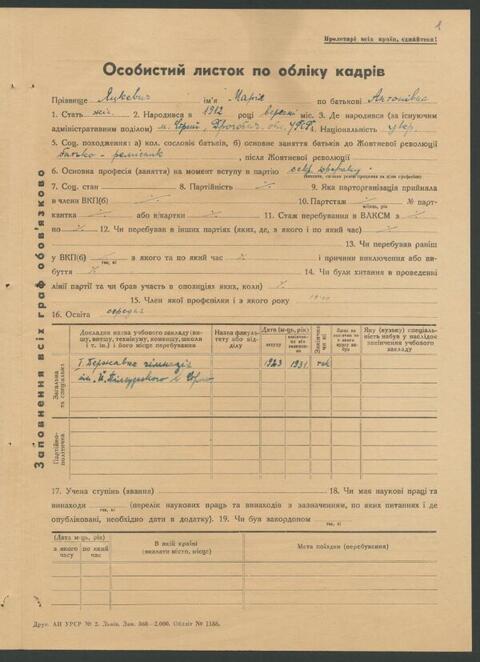 1
Пролетарі всіх країн, єднайтеся!
Особистий листок по обліку кадрів
Прізвище Яцкевич ім'я Марія по батькові Антонівна
1. Стать жін. 2. Народився в 1912 році вересні міс. 3. Де народився (за існуючим
адміністративним поділом) м. Стрий, Дрогобич. обл. УРСР. Національність укр.
5. Соц. походження: а) кол. сословіє батьків, б) основне заняття батьків до Жовтневої революції
батько - ремісник, після Жовтневої революції
6. Основна професія (заняття) на момент вступу в партію
7. Соц. стан 8. Партійність 9. Яка парторганізація прийняла
в члени ВКП(б) 10. Партстаж № парт-
місяць, рік
квитка або к/картки 11. Стаж перебування в ВЛКСМ з
по 12. Чи перебував в інших партіях (яких, де, з якого і по який час)
13. Чи перебував раніш
у ВКП(б) з якого та по який час і причини виключення або ви-
так, ні
буття 14. Чи були хитання в проведенні
лінії партії та чи брав участь в опозиціях яких, коли)
15. Член якої профспілки і з якого року
16. Освіта середня
Заповнення всіх граф обов'язково
Докладна назва учбового закладу (ви-
шу, втишу, технікуму, комвишу, школи
і т. ін.) і його місце перебування
Назва факуль-
тету або від-
ділу
Дата (м-ць, рік)
вступу
Закінчив
чи ні
Яку (вузьку) спеціаль-
ність набув у наслідок
закінчення учбового
закладу
Загальна
та спеціальна
І. Державна гімназія 1923 1931 так
ім. Й. Пілсудського в
Партійно-
політична
17. Учена ступінь (звання) 18. Чи має наукові праці та
винаходи (перелік наукових праць та винаходів з зазначенням, по яких питаннях і де
так, ні
опубліковані, необхідно дати в додатку). 19. Чи був закордоном
так, ні
(Дата м-ць, рік)
з якого
часу
по який
час
В якій країні
(вказати місто, місце)
Мета поїздки (перебування)
Друк. АН УРСР № 2. Львів. Зам. 868—2.000. Обліт № 1186.